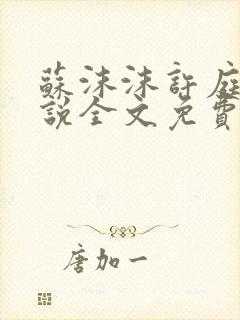 蘇沫沫許庭
說全文免費
唐加一